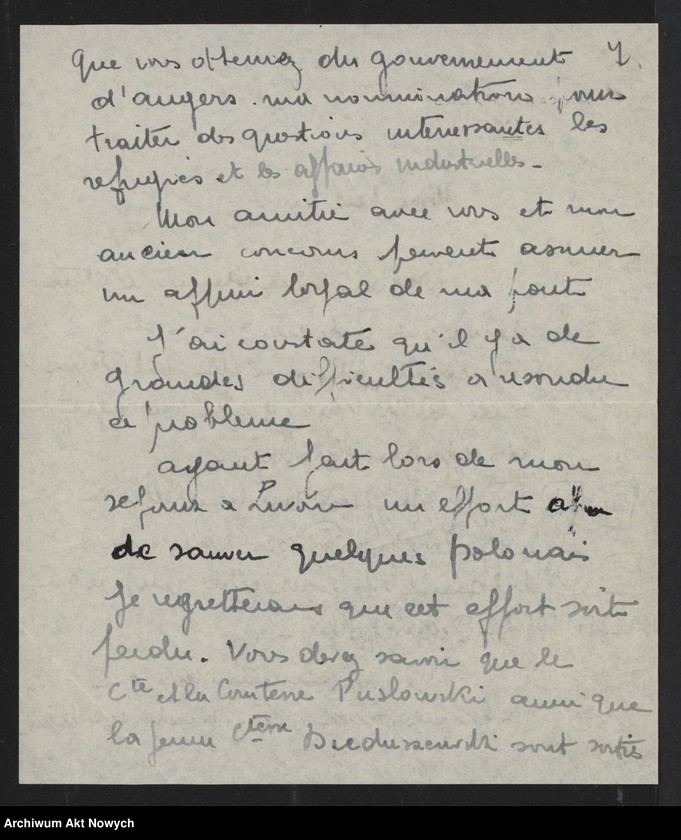 que vous obteniez du gouvernement 7.
d'angers ma nomination pour
traiter des questions interessantes les
refugiés et les affaires industrielles -
Mon amitié avec vous et mon
ancien concours peuvent assurer
un appui loyal de ma part
J'ai constaté qu'il y a de
grandes difficultés a resoudre
ce probleme
ayant fait lors de mon
sejour a Lwow un effort afin
de sauver quelques polonais
Je regretterais que cet effort soit
perdu. Vous devez savoir que le
Cte et la Comtesse Puslowski ainsi que
la jeune Ctesse sont sortis
Archiwum Akt Nowych